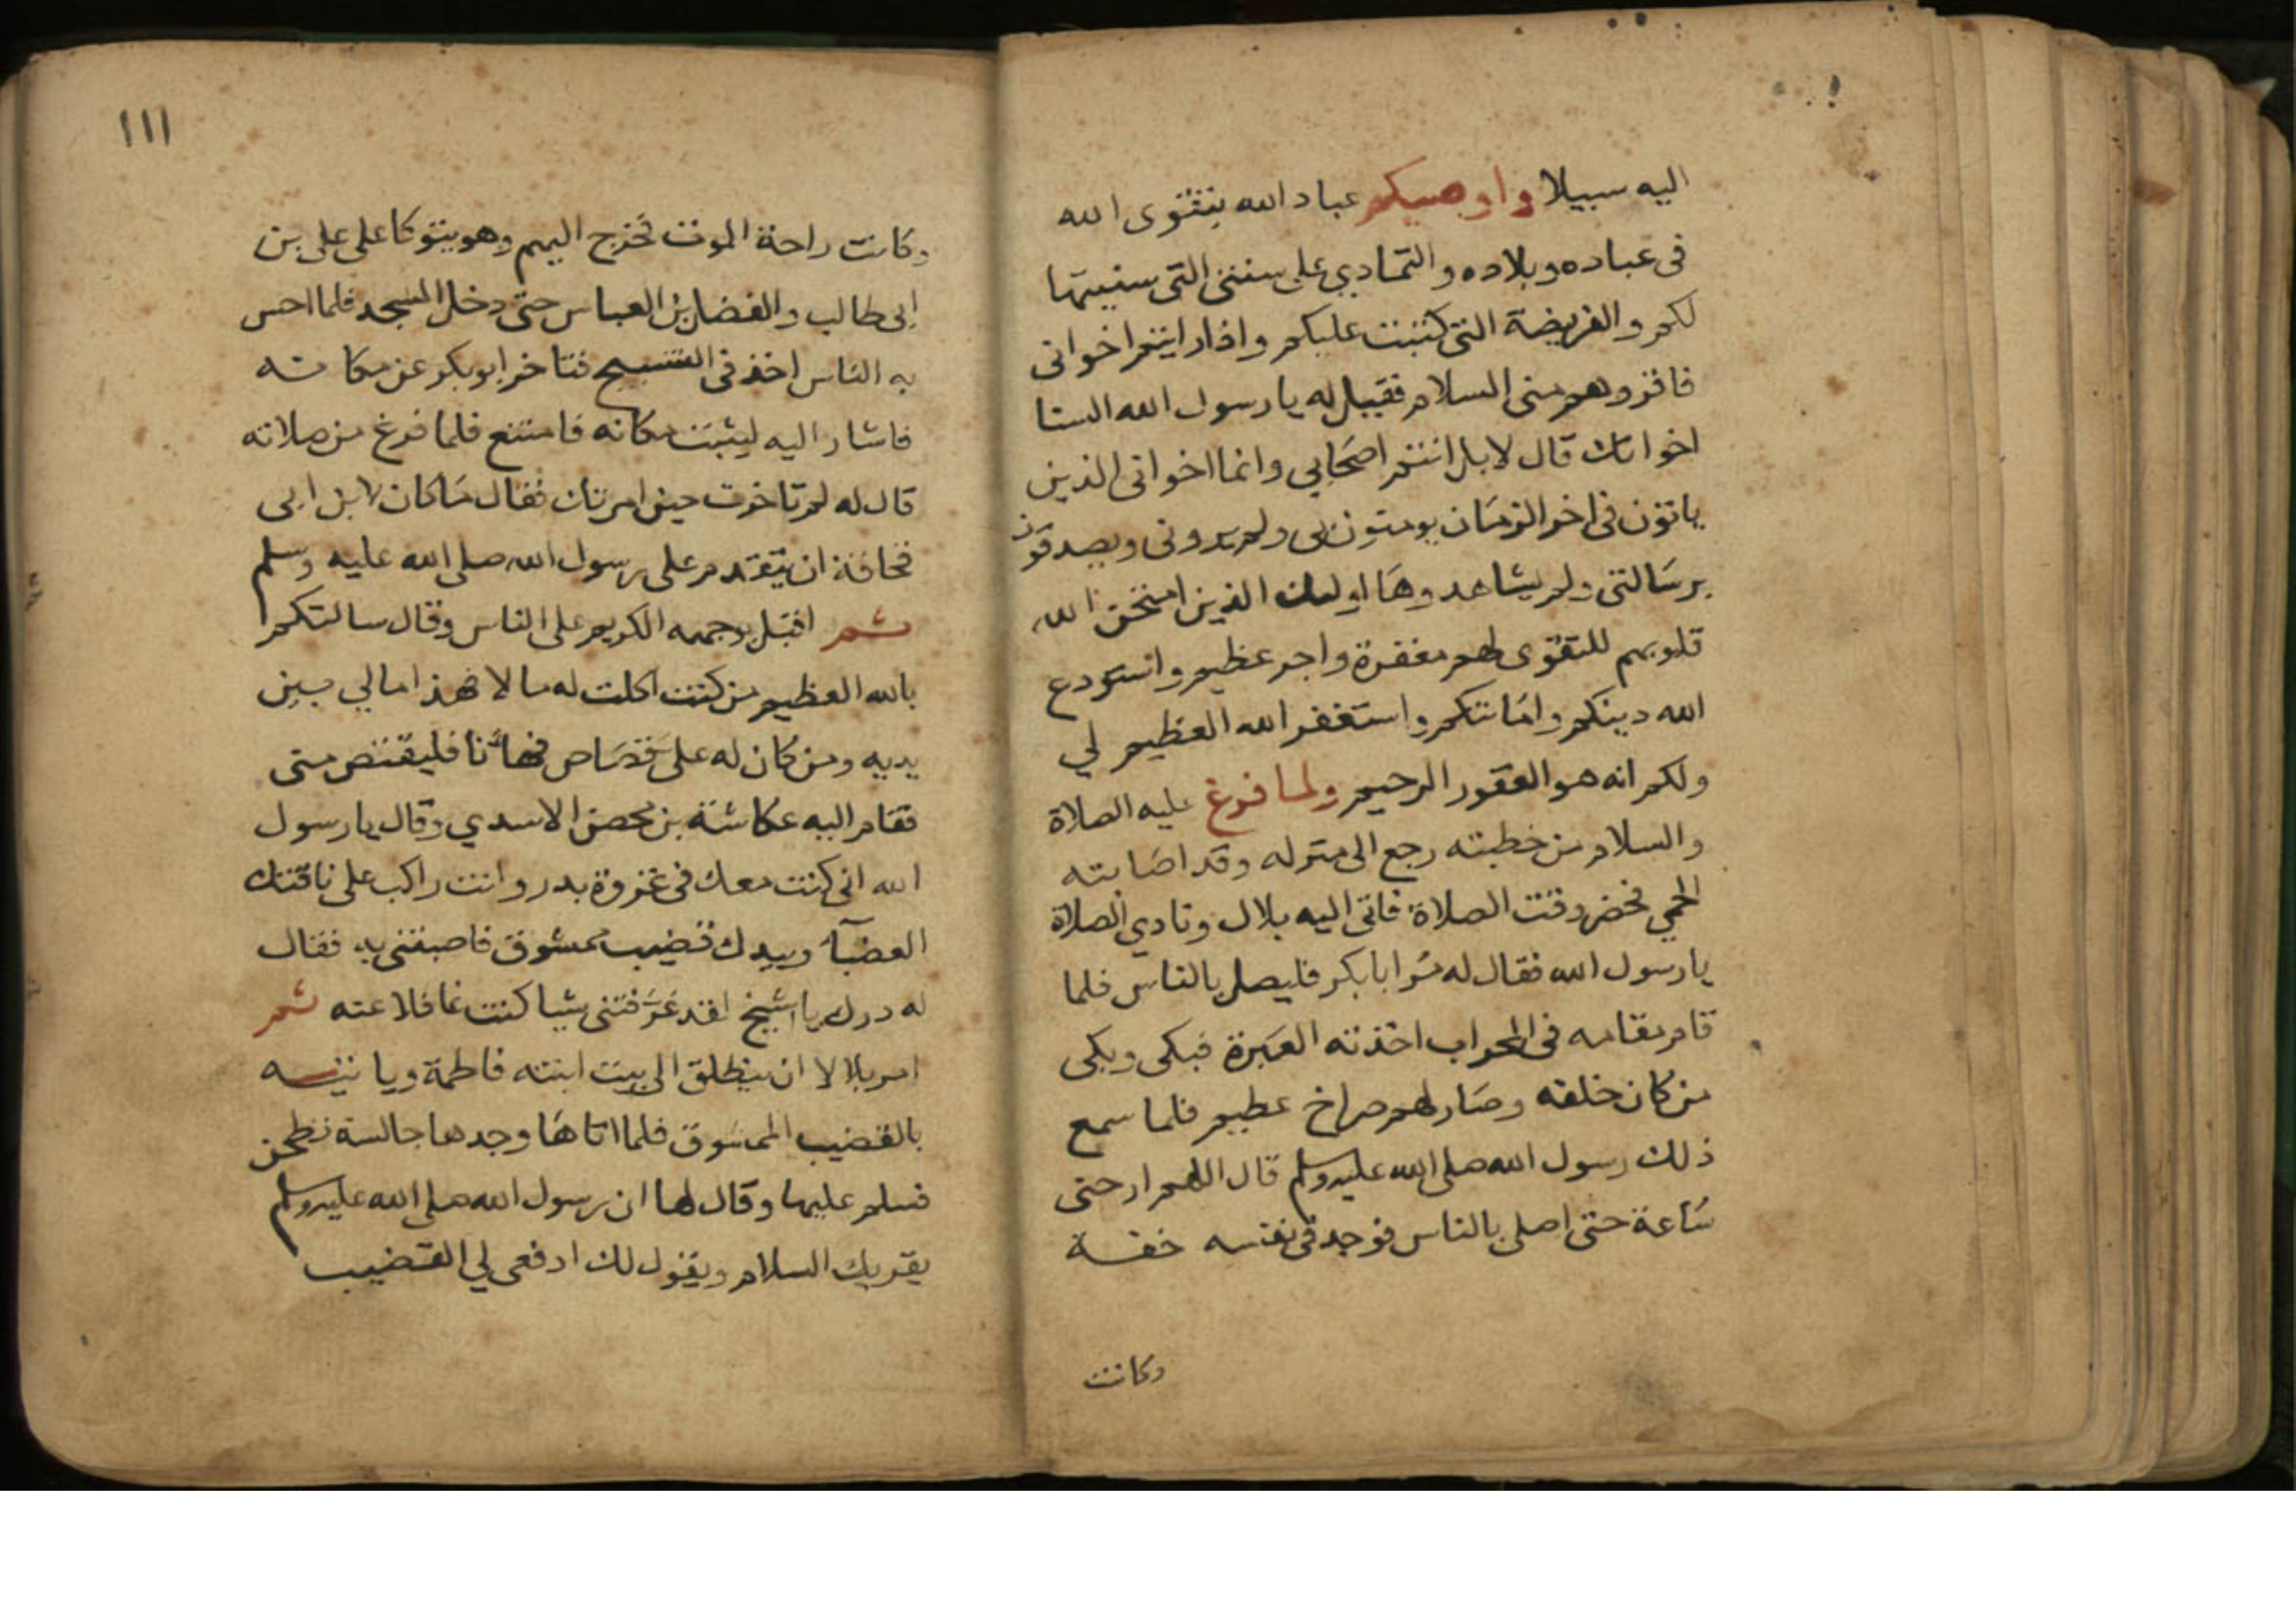 اليه سبيلا واوصيكم عباد الله بتقوى الله
فى عباده وبلاده والتمادي على سنتى التى سنيتها
لكم والفريضة التى كتبت عليكم واذا رايتم اخوانى
فاقروهم منى السلام فقيل له يا رسول الله السنا
اخوانك قال لا بل انتم اصحابي وانما اخوانى الذين
ياتون فى اخر الزمان يومنون بى ولم يرونى ويصدقون
برسالتى ولم يشاهدوها اولئك الذين امتحن الله
قلوبهم للتقوى لهم مغفرة واجر عظيم واستودع
الله دينكم وامانتكم واستغفر الله العظيم لي
ولكم انه هو الغفور الرحيم ولما فرغ عليه الصلاة
والسلام من خطبته رجع الى منزله وقد اصابته
الحمي فحضر وقت الصلاة فاتى اليه بلال ونادي الصلاة
يا رسول الله فقال له مر ابا بكر فليصل بالناس فلما
قام مقامه فى المحراب اخذته العبرة فبكى وبكى
من كان خلفه وصار لهم صراخ عظيم فلما سمع
ذلك رسول الله صلى الله عليه وسلم قال اللهم ارحنى
ساعة حتى اصلى بالناس فوجد فى نفسه خفة
وكانت
١١١
وكانت راحة الموت فخرج اليهم وهو يتوكا على على بن
ابى طالب والفضل بن العباس حتى دخل المسجد فلما احس
به الناس اخذ فى التسبيح فتاخر ابو بكر عن مكانه
فاشار اليه ليثبت مكانه فامتنع فلما فرغ من صلاته
قال له لم تاخرت حين امرتك فقال ما كان لابن ابى
قحافة ان يتقدم على رسول الله صلى الله عليه وسلم
ثم اقبل بوجهه الكريم على الناس وقال سالتكم
بالله العظيم من كنت اكلت له مالا فهذا مالي بين
يديه ومن كان له على قصاص فها انا فليقتص منى
فقام اليه عكاشة بن محصن الاسدي وقال يا رسول
الله انى كنت معك فى غزوة بدر وانت راكب على ناقتك
العضبآ وبيدك قضيب ممشوق فاصبتنى به فقال
له درك يا شيخ لقد عرفتنى شيا كنت غافلا عنه ثم
امر بلالا ان ينطلق الى بيت ابنته فاطمة وياتيه
بالقضيب الممشوق فلما اتاها وجدها جالسة تطحن
فسلم عليها وقال لها ان رسول الله صلى الله عليه وسلم
يقريك السلام ويقول لك ادفعى لي القضيب